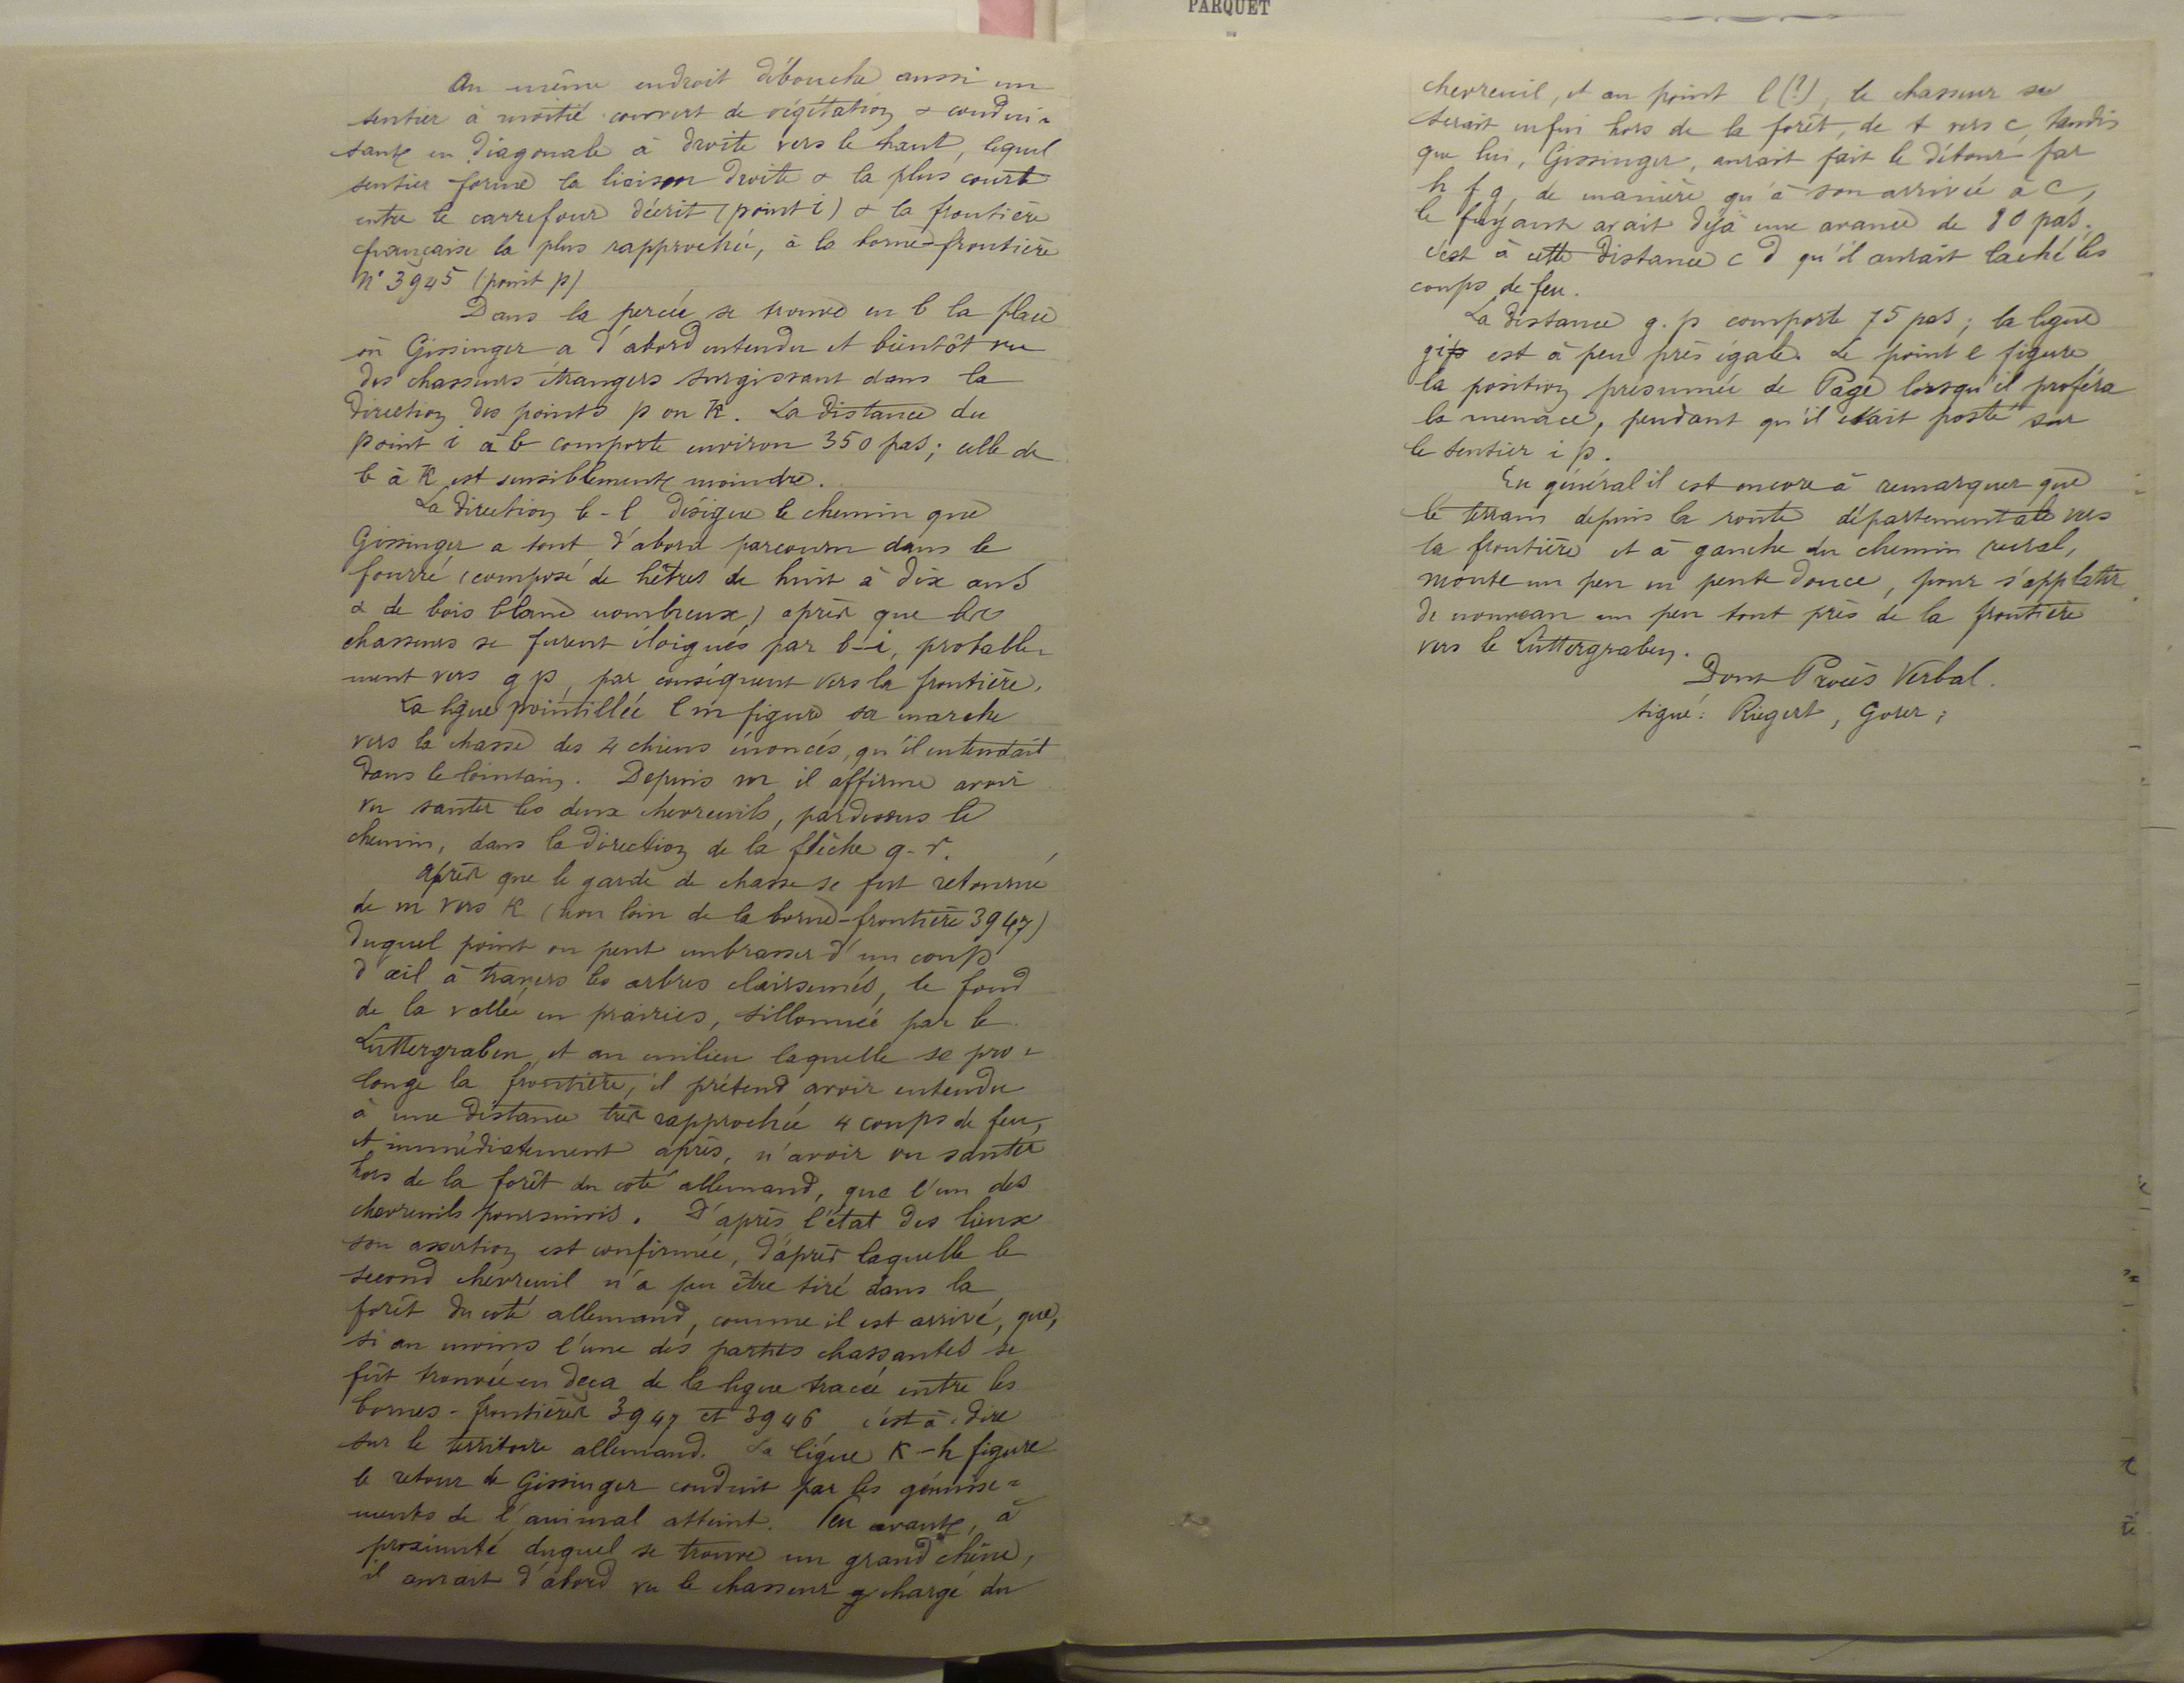 PARQUET
Au même endroit débouche aussi un
sentier à moitié couvert de végétation & condui-
sant en diagonale à droite vers le haut, lequel
sentier forme la liaison droite & la plus courte
entre le carrefour décrit (point i) & la frontière
française la plus rapprochée, à la borne-frontière
N° 3945 (point p)
Dans la percée se trouve en b la place
où Gissinger a d'abord entendu et bientôt vu
des chasseurs étrangers surgissant dans la
direction des points p ou K. La distance du
point i à b comporte environ 350 pas; celle de
b à K est sensiblement moindre.
La direction b-l désigne le chemin que
Gissinger a tout d'abord parcouru dans le
fourré (composé de hêtres de huit à dix ans
& de bois blanc nombreux) après que les
chasseurs se furent éloignés par b-i, probable-
ment vers g p, par conséquent vers la frontière.
La ligne pointillée l m figure sa marche
vers la chasse des 4 chiens énoncés, qu'il entendait
dans le lointain. Depuis m il affirme avoir
vu sauter les deux chevreuils, pardessus le
chemin, dans la direction de la flèche q-r.
après que le garde de chasse se fut retourné
de m vers K (non loin de la borne-frontière 3947)
duquel point on peut embrasser d'un coup
d'œil à travers les arbres clairsemés, le fond
de la vallée en prairies, sillonnée par le
Luttergraben, et au milieu laquelle se pro-
longe la frontière, il prétend avoir entendu
à une distance très rapprochée 4 coups de feu,
et immédiatement après, n'avoir vu sauter
hors de la forêt du coté allemand, que l'un des
chevreuils poursuivis. D'après l'état des lieux
son assertion est confirmée, d'après laquelle le
second chevreuil n'a pu être tiré dans la
forêt du coté allemand, comme il est arrivé, que,
si au moins l'une des parties chassantes se
fût trouvée en deça de la ligne tracée entre les
bornes-frontières 3947 et 3946, c'est à-dire
sur le territoire allemand. La ligne K-h figure
le retour de Gissinger conduit par les gémisse-
ments de l'animal atteint. En avant, à
proximité duquel se trouve un grand chêne,
il aurait d'abord vu le chasseur g chargé du
chevreuil, et au point l (?), le chasseur se
serait enfui hors de la forêt, de t vers c, tandis
que lui, Gissinger, aurait fait le détour par
h f g, de manière qu'à son arrivée à c,
le fuyant avait déjà une avance de 80 pas.
c'est à cette distance c d qu'il aurait laché les
coups de feu.
La distance g. p comporte 75 pas; la ligne
gip est à peu près égale. Le point e figure
la position présumée de Page lorsqu'il proféra
la menace, pendant qu'il était posté sur
le sentier i p.
En général il est encore à remarquer que
le terrain depuis la route départementale vers
la frontière et à gauche du chemin rural,
monte un peu en pente douce, pour s'applatir
de nouveau un peu tout près de la frontière
vers le Luttergraben.
Dont Procès Verbal.
signé: Riegert, Goser;